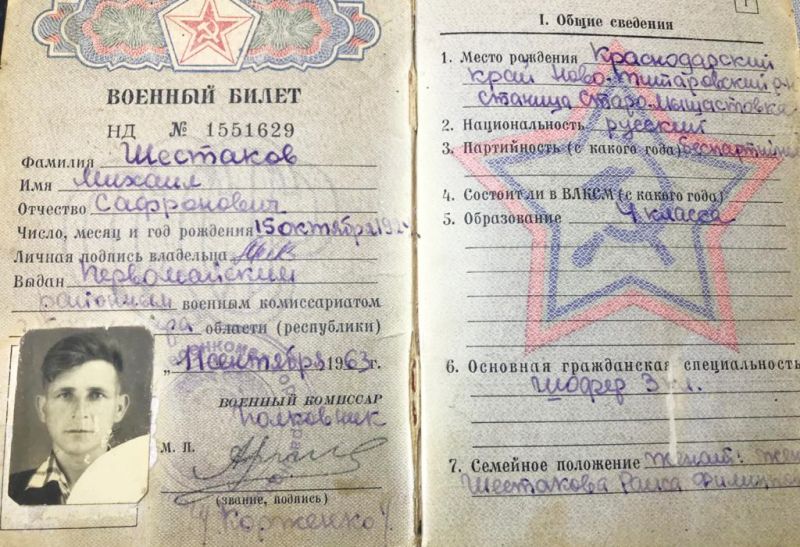 ВОЕННЫЙ БИЛЕТ
НД № 1551629
Фамилия Шестаков
Имя Михаил
Отчество Сафронович
Число, месяц и год рождения 15 октября
Личная подпись владельца
Выдан Первомайским
районным военным комиссариатом
области (республики)
„11 сентября 1963 г.
ВОЕННЫЙ КОМИССАР
Полковник
М. П.
(звание, подпись)
"Корженко"
1
I. Общие сведения
1. Место рождения Краснодарский
край Ново-Титаровский
станица Старо-Мышастовка
2. Национальность русский
3. Партийность (с какого года)
4. Состоит ли в ВЛКСМ (с какого года)
5. Образование 4 класса
6. Основная гражданская специальность
шофер 3 кл.
7. Семейное положение женат:
Шестакова Раиса